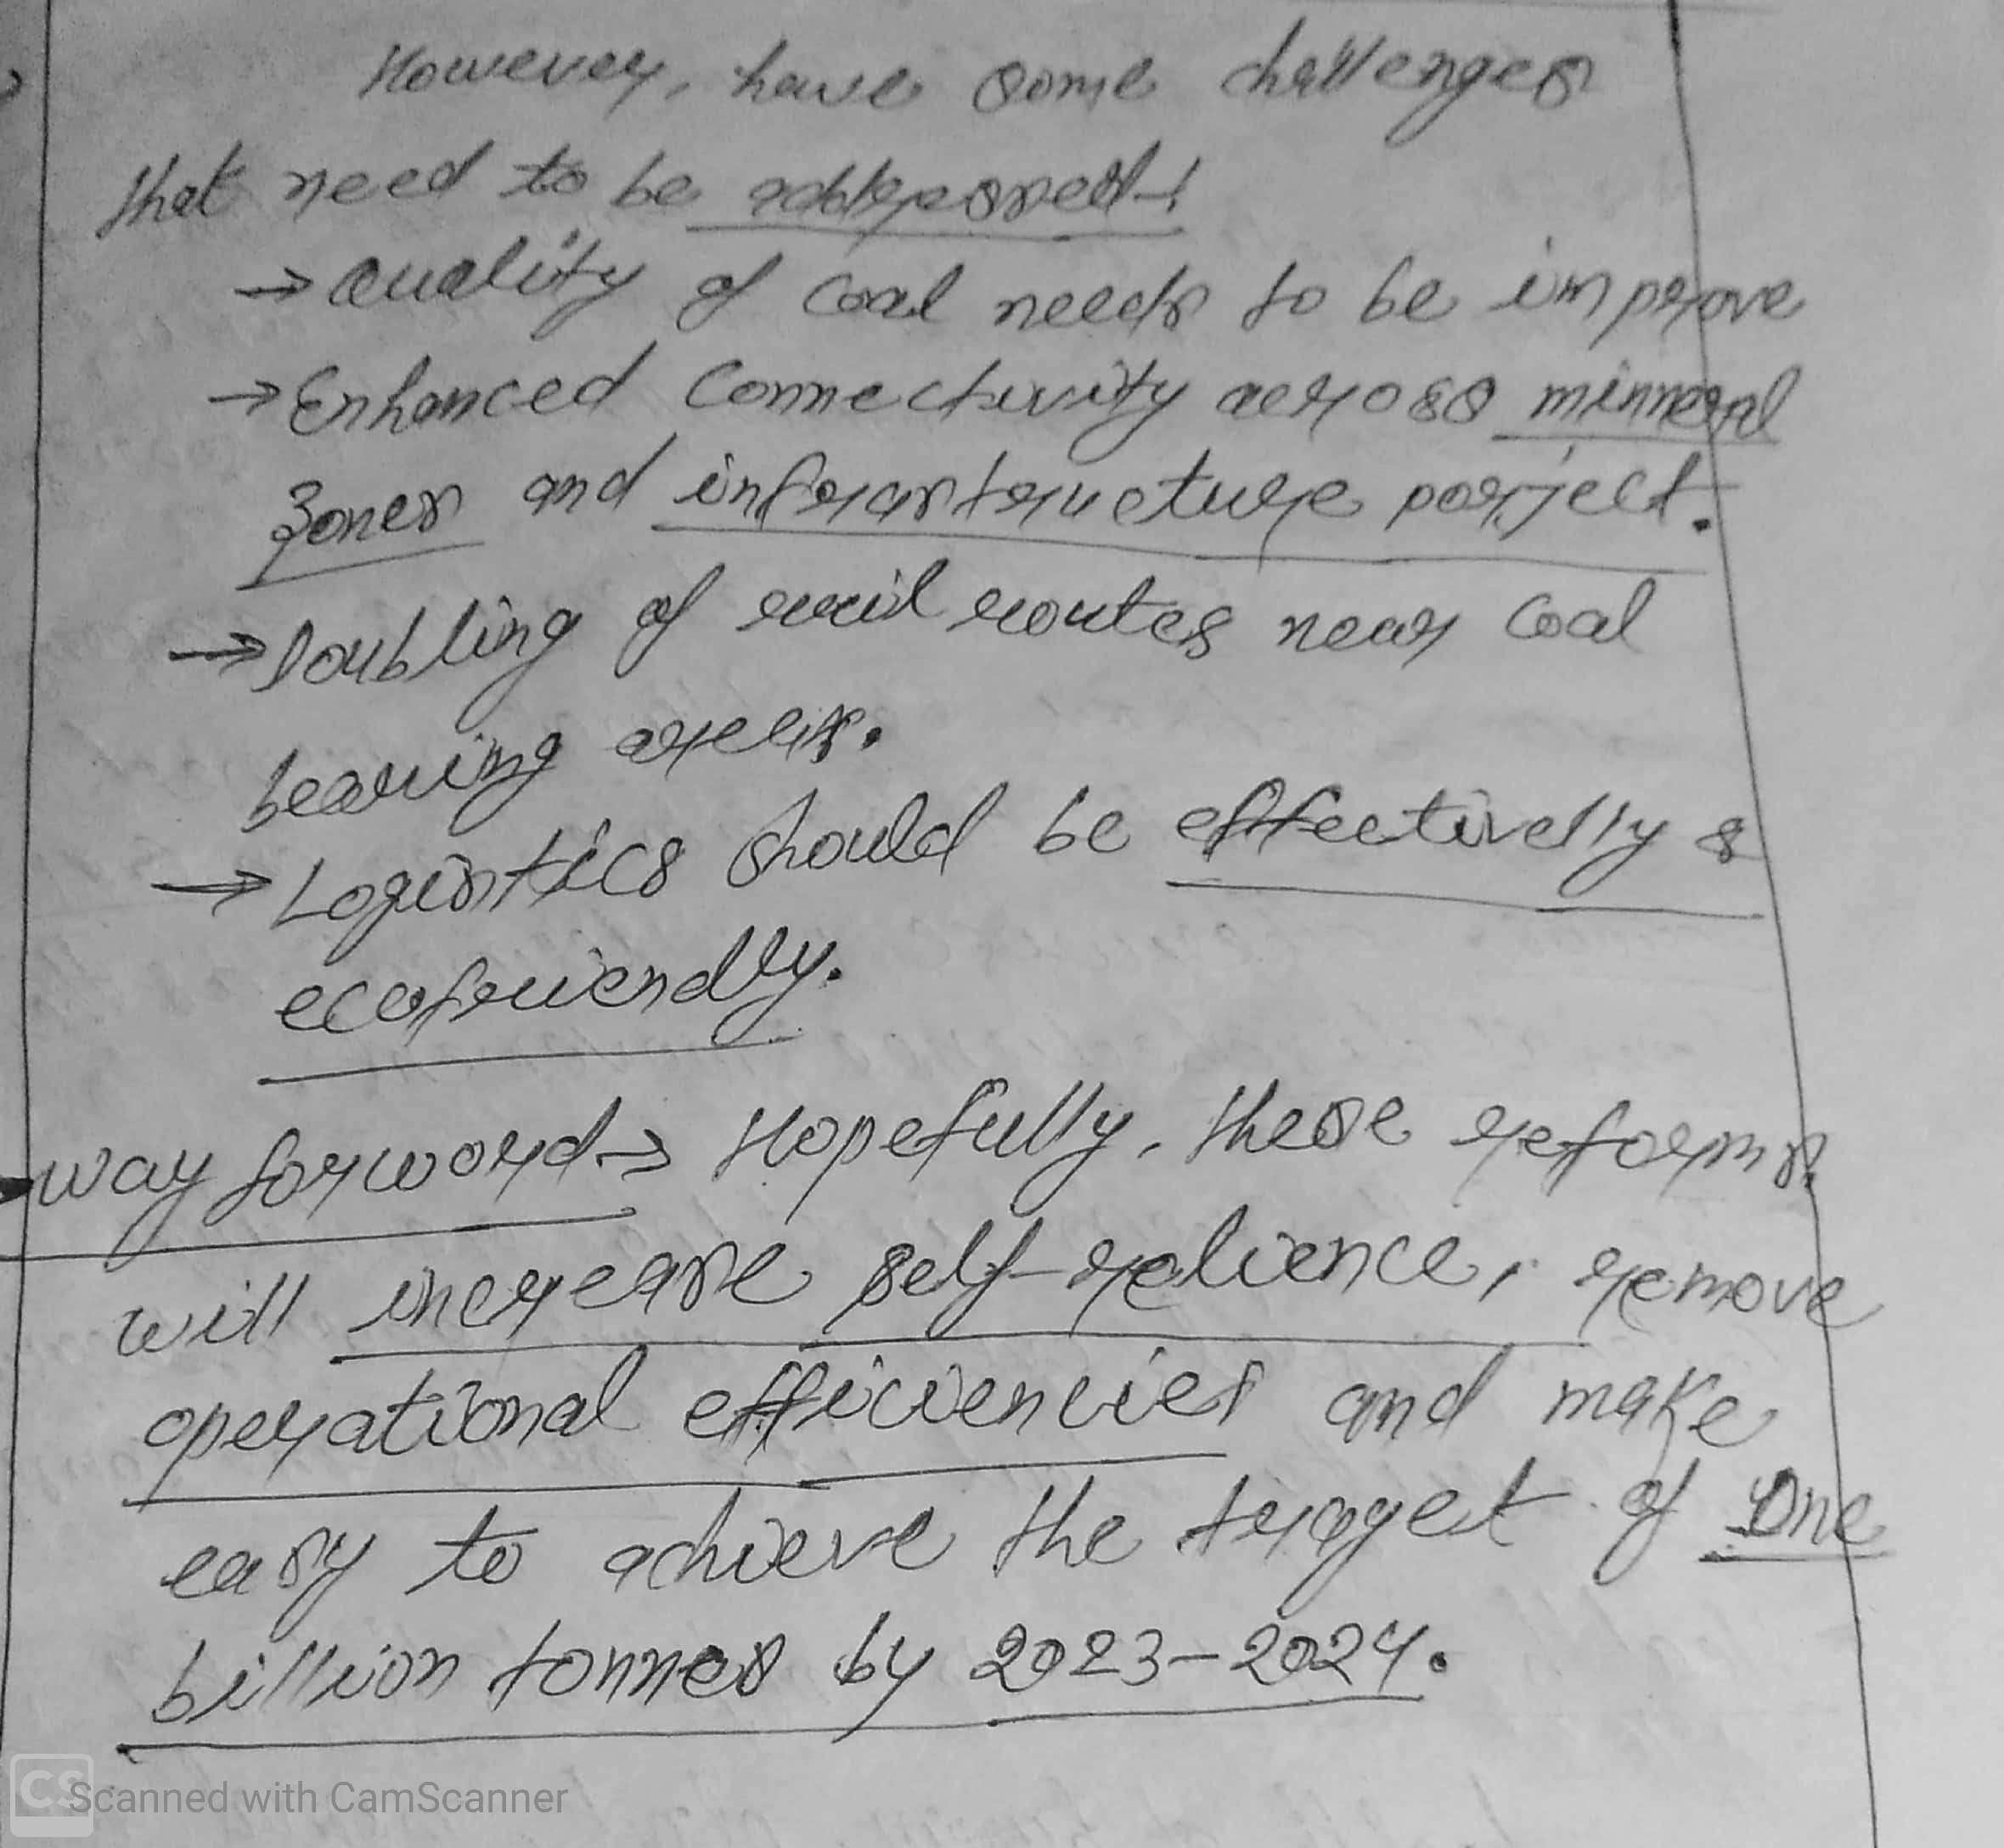 However, have some challenges
that need to be addressed :
→ Quality of coal needs to be improve
→ Enhanced Connectivity across minneral
zones and infrarstructure porject.
→ Doubling of rail routes near coal
bearing areas.
→ Logistics should be effectivelly &
ecofriendly.
way forword → Hopefully, these reforms
will increase self-relience, remove
operational efficiencies and make
easy to achieve the traget of One
billion tonnes by 2023-2024.
CS Scanned with CamScanner